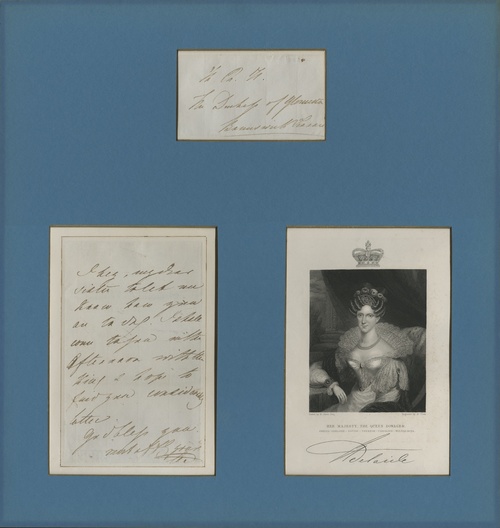 H. R. H.
The Duchess of Gloucester
I beg, my dear
sister to let me
know how you
are to day. I shall
come to you in the
afternoon with the
King & hope to
find you considerably
better.
God bless you
HER MAJESTY, THE QUEEN ADELAIDE.
Adelaide